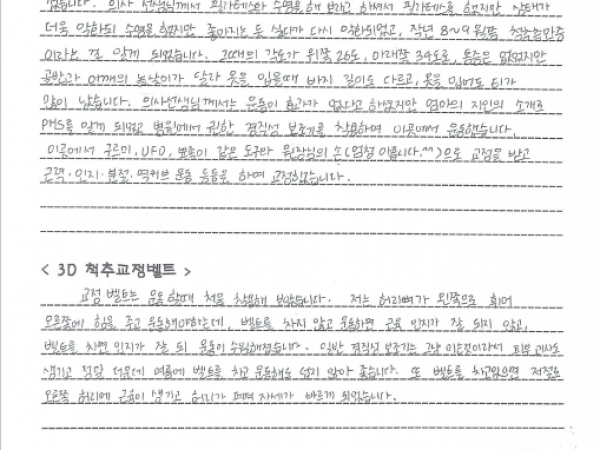 의사 선생님께서 필라테스와 수영을 해 보라고 하셔서 필라테스를 했지만 상태가
더욱 악화되 수영을 했지만 좋아지는 듯 하다가 다시 악화되었고, 작년 8~9월쯤 척추측만증
이라는 걸 알게 되었습니다. 그때의 각도가 위쪽 26도, 아래쪽 34도로, 통증은 없었지만
골반과 어깨의 높낮이가 달라 옷을 입을때 바지 길이도 다르고, 옷을 입어도 티가
많이 났습니다. 의사선생님께서는 운동이 효과가 없다고 하셨지만 엄마의 지인의 소개로
PHS를 알게 되었고 병원에서 권한 경직성 보조기를 착용하며 이곳에서 운동했습니다.
이곳에서 구르미, UFO, 뾰족이 같은 도구와 원장님의 손(엄청 아픕니다.^^)으로 교정을 받고
근력·인지·분절·역커브 운동 등등을 하며 교정했습니다.
< 3D 척추교정벨트 >
교정 벨트는 운동할때 처음 착용해 보았습니다. 저는 허리뼈가 왼쪽으로 휘어
오른쪽에 힘을 주고 운동해야하는데, 벨트를 차지 않고 운동하면 근육 인지가 잘 되지 않고,
벨트를 차면 인지가 잘 되 운동이 수월해졌습니다. 일반 경직성 보조기는 피부
생기고 정말 더운데 여름에 벨트를 차고 운동해도 덥지 않아 좋습니다. 또 벨트를 차고있으면 저절로
오른쪽 허리에 근육이 생기고 허리가 펴져 자세가 바르게 되었습니다.